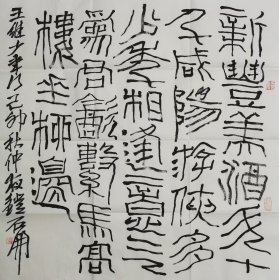 新豐美酒斗十
千咸陽游俠多
少年相逢意气
為君飲繫馬高
樓垂柳邊
王維少年行丁卯秋仲